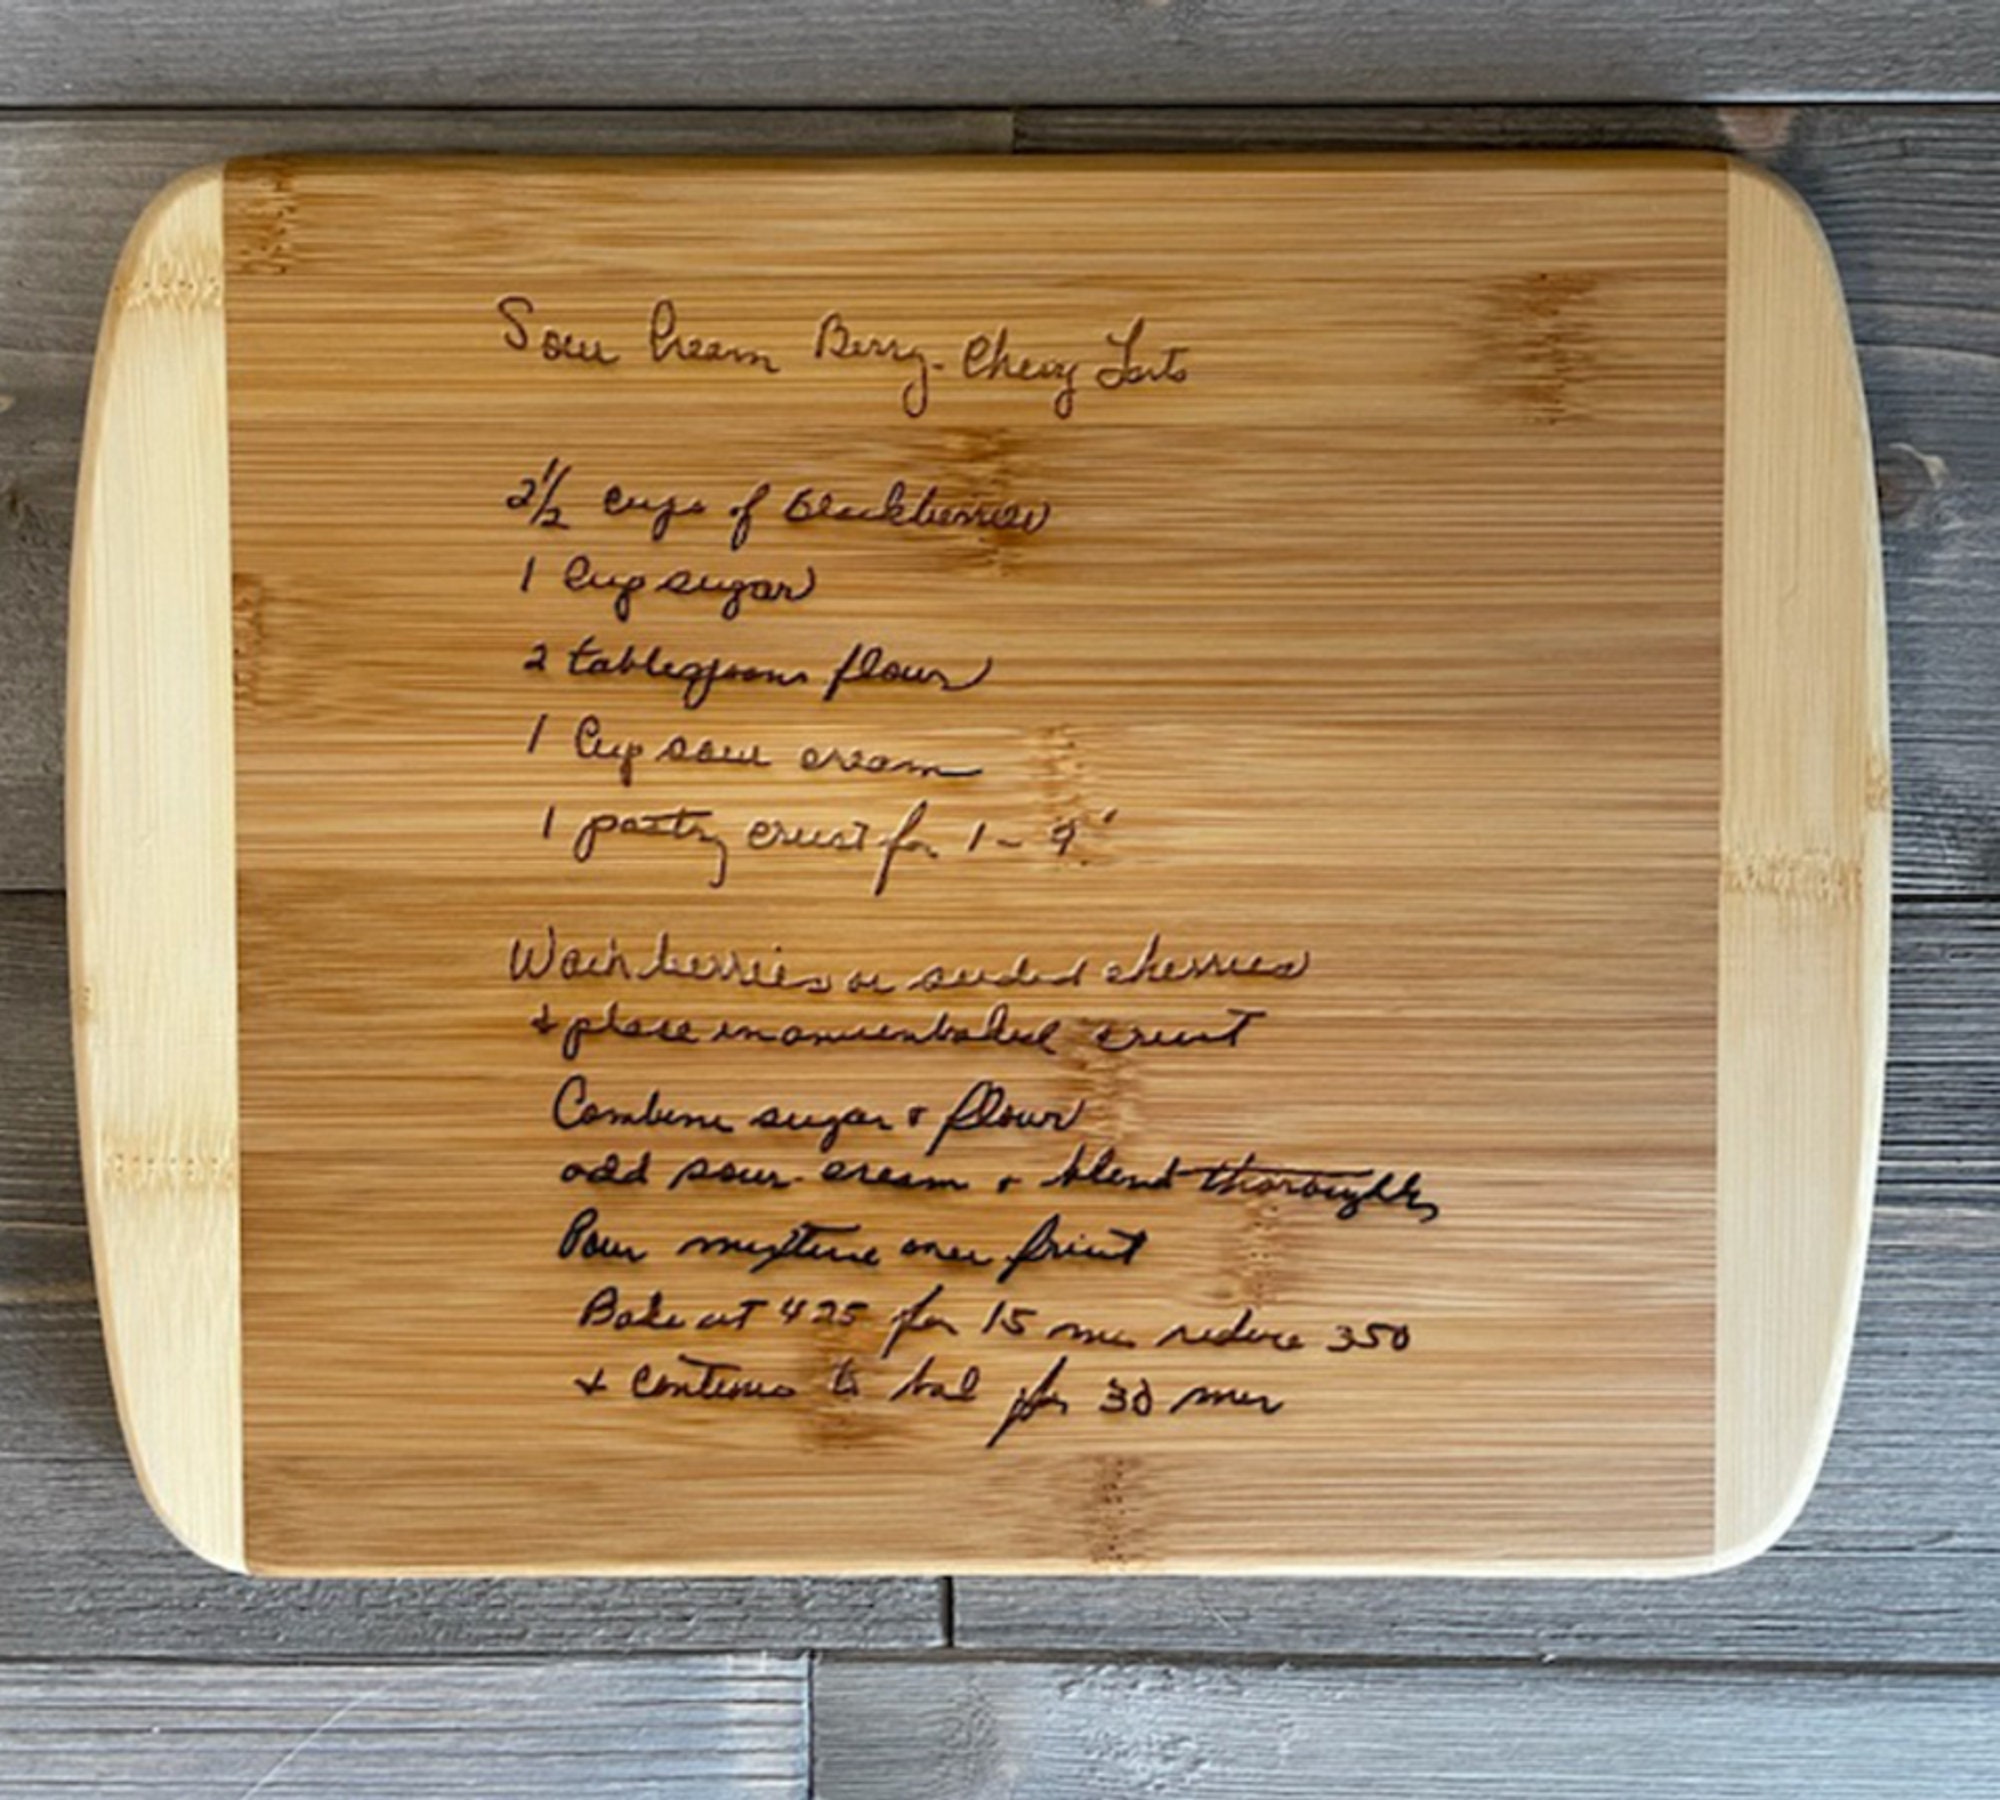 Sour Cream Berry-Cherry Tarts
2 1/2 cups of blackberries
1 Cup sugar
2 tablespoons flour
1 Cup sour cream
1 pastry crust for 1 - 9"
Wash berries or seeded cherries
& place in an unbaked crust
Combine sugar & flour
add sour cream & blend thoroughly
Pour mixture over fruit
Bake at 425 for 15 min reduce 350
& continue to bake for 30 min